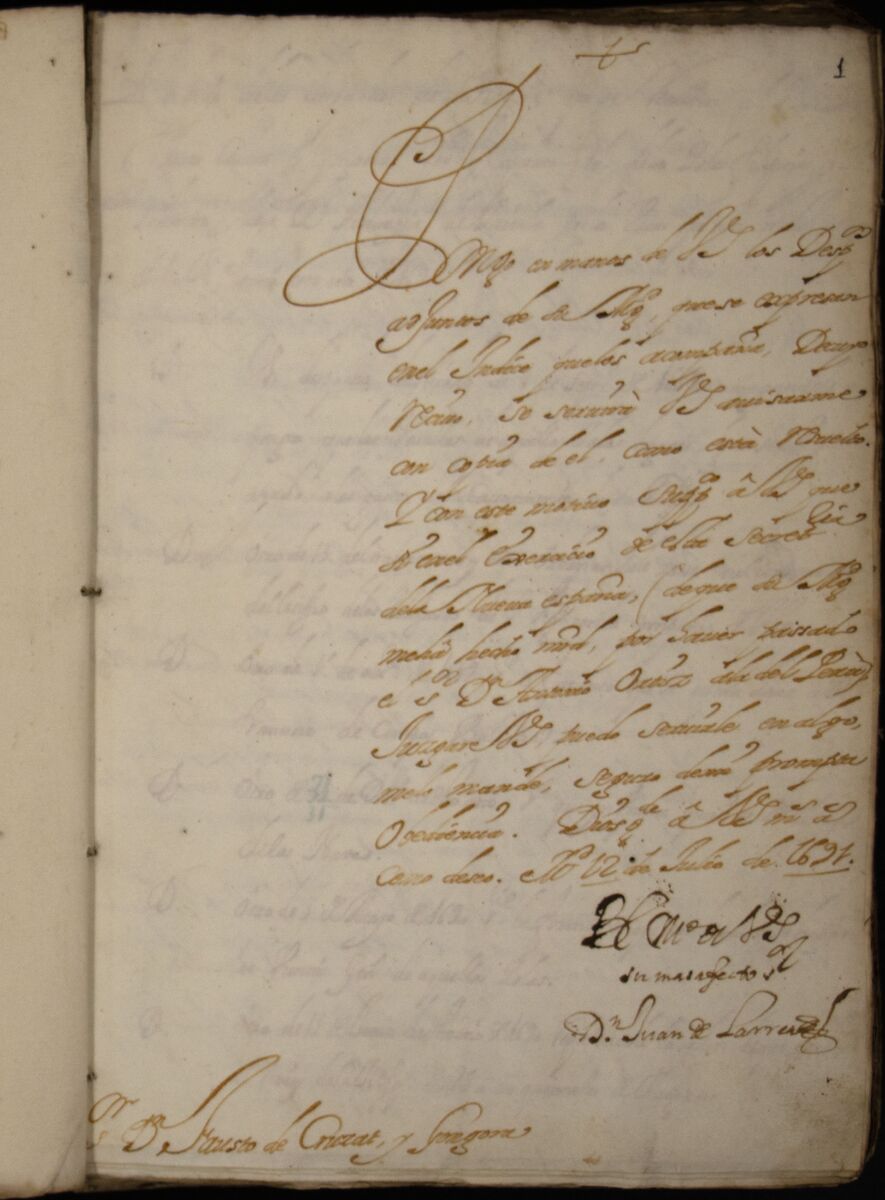 1
Pongo en manos de VS los Desp.os
adjuntos de su Mg.d, que se expresan
en el Indice que les acompaña, De cuyo
reciuo, se seruirà VS auisarme
con copia de el, como està resuelto.
Y con este motiuo supp.co â VS que
si en el exercicio de esta secret.ria
de la Nueua españa, (de que su Mg.d
me ha hecho mrd, por hauer passado
el s.or Dn Antonio Ortiz ala del Perù)
Juzgare VS puedo seruirle en algo,
me lo mande, seguro de mi prompta
Obediencia. Dios g.de â VS m.s a.s
como deseo. M.d 12 de Julio de 1691.
BLM de VS
su mas afecto s.or
D.n Juan de Larrea
S.or Dn Fausto de Cruzat, y Gongora